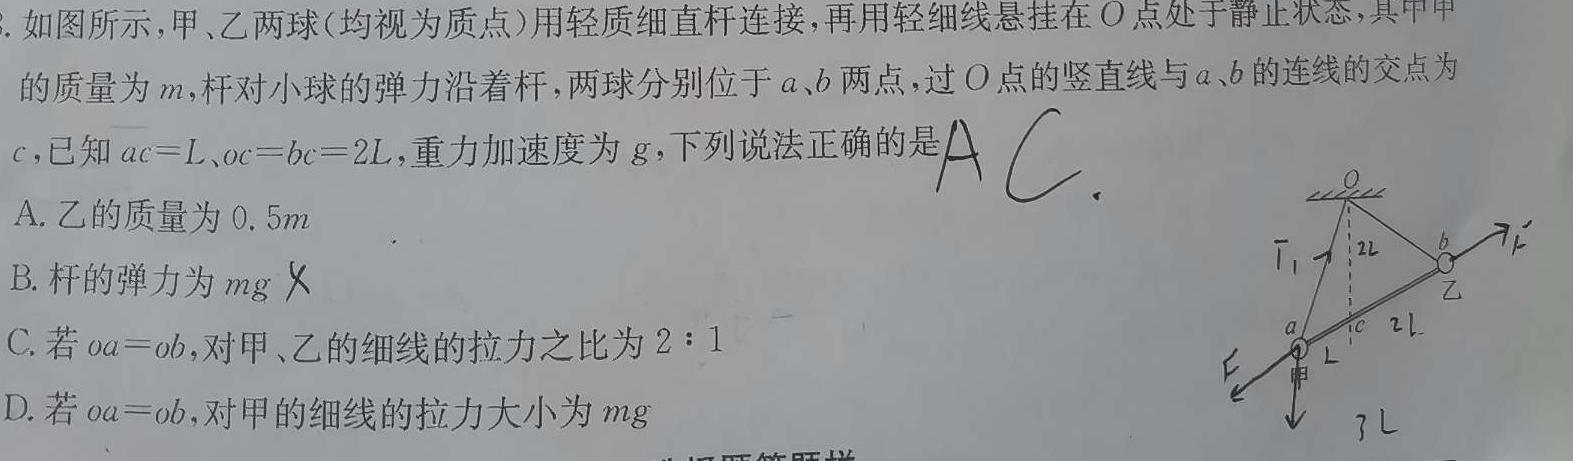 3. 如图所示,甲、乙两球(均视为质点)用轻质细直杆连接,再用轻细线悬挂在O点处于静止状态,其中甲
的质量为m,杆对小球的弹力沿着杆,两球分别位于a、b两点,过O点的竖直线与a、b的连线的交点为
c,已知ac=L、oc=bc=2L,重力加速度为g,下列说法正确的是AC.
A. 乙的质量为0.5m
B. 杆的弹力为mg X
C. 若oa=ob,对甲、乙的细线的拉力之比为2:1
D. 若oa=ob,对甲的细线的拉力大小为mg
O
T₁ 2L b F
乙
a c 2L
F L
甲
3L